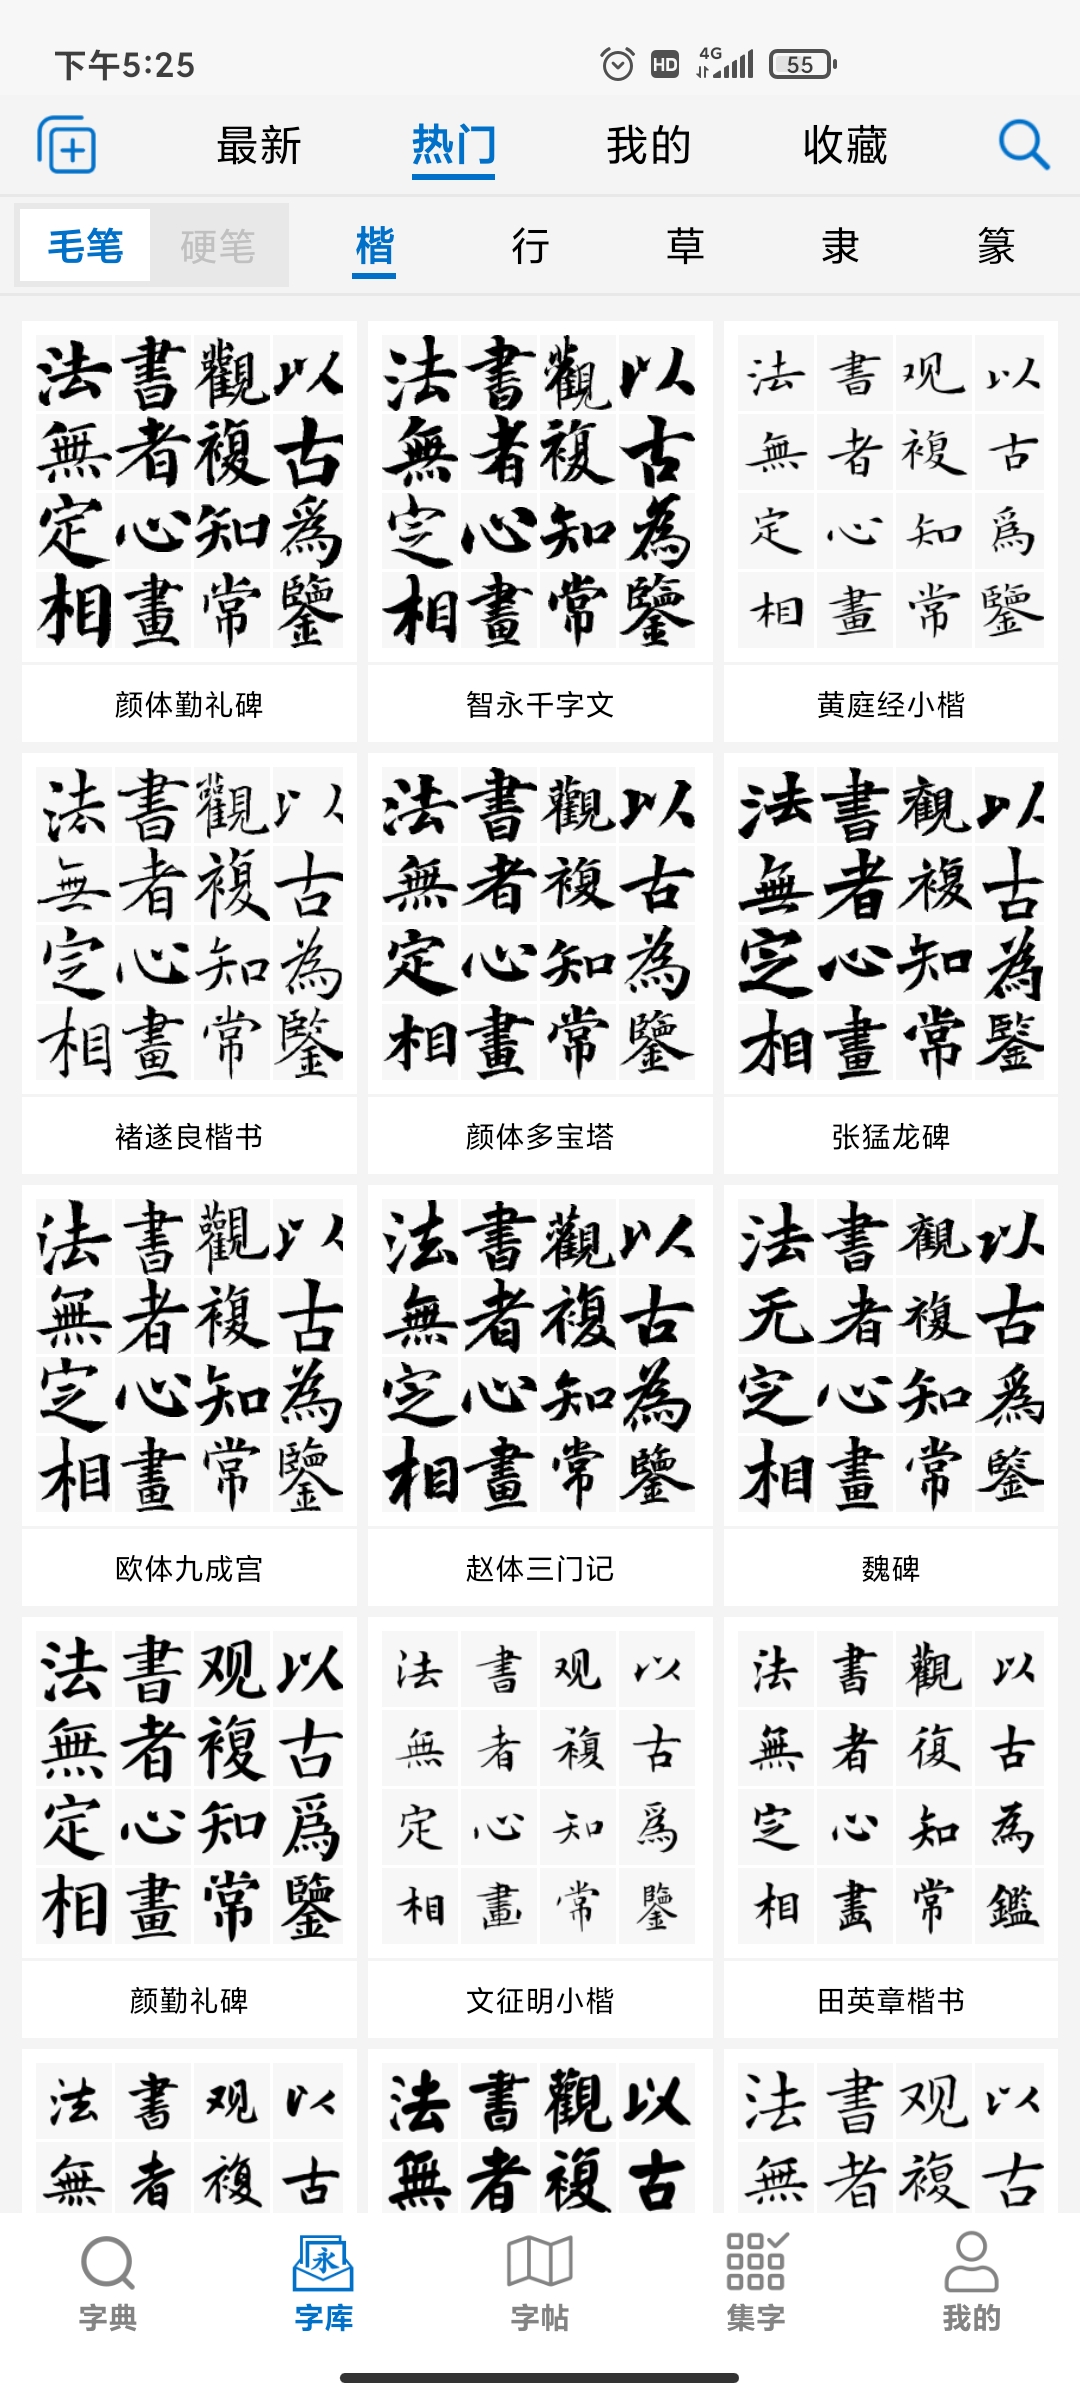 下午5:25
HD 4G 55
最新 热门 我的 收藏
毛笔 硬笔 楷 行 草 隶 篆
法書觀以 法書觀以 法書观以
無者複古 無者複古 無者複古
定心知爲 定心知為 定心知爲
相畫常鑒 相畫常鑒 相畫常鑒
颜体勤礼碑 智永千字文 黄庭经小楷
法書觀以 法書觀以 法書観以
無者複古 無者複古 無者複古
定心知為 定心知為 定心知為
相畫常鑒 相畫常鑒 相畫常鑒
褚遂良楷书 颜体多宝塔 张猛龙碑
法書觀以 法書觀以 法書観以
無者複古 無者複古 无者複古
定心知為 定心知為 定心知爲
相畫常鑒 相畫常鑒 相畫常鑒
欧体九成宫 赵体三门记 魏碑
法書观以 法書观以 法書觀以
無者複古 無者複古 無者復古
定心知爲 定心知爲 定心知為
相畫常鑒 相畫常鑒 相畫常鑑
颜勤礼碑 文征明小楷 田英章楷书
法書观以 法書觀以 法書观以
無者複古 無者複古 無者複古
永
字典 字库 字帖 集字 我的